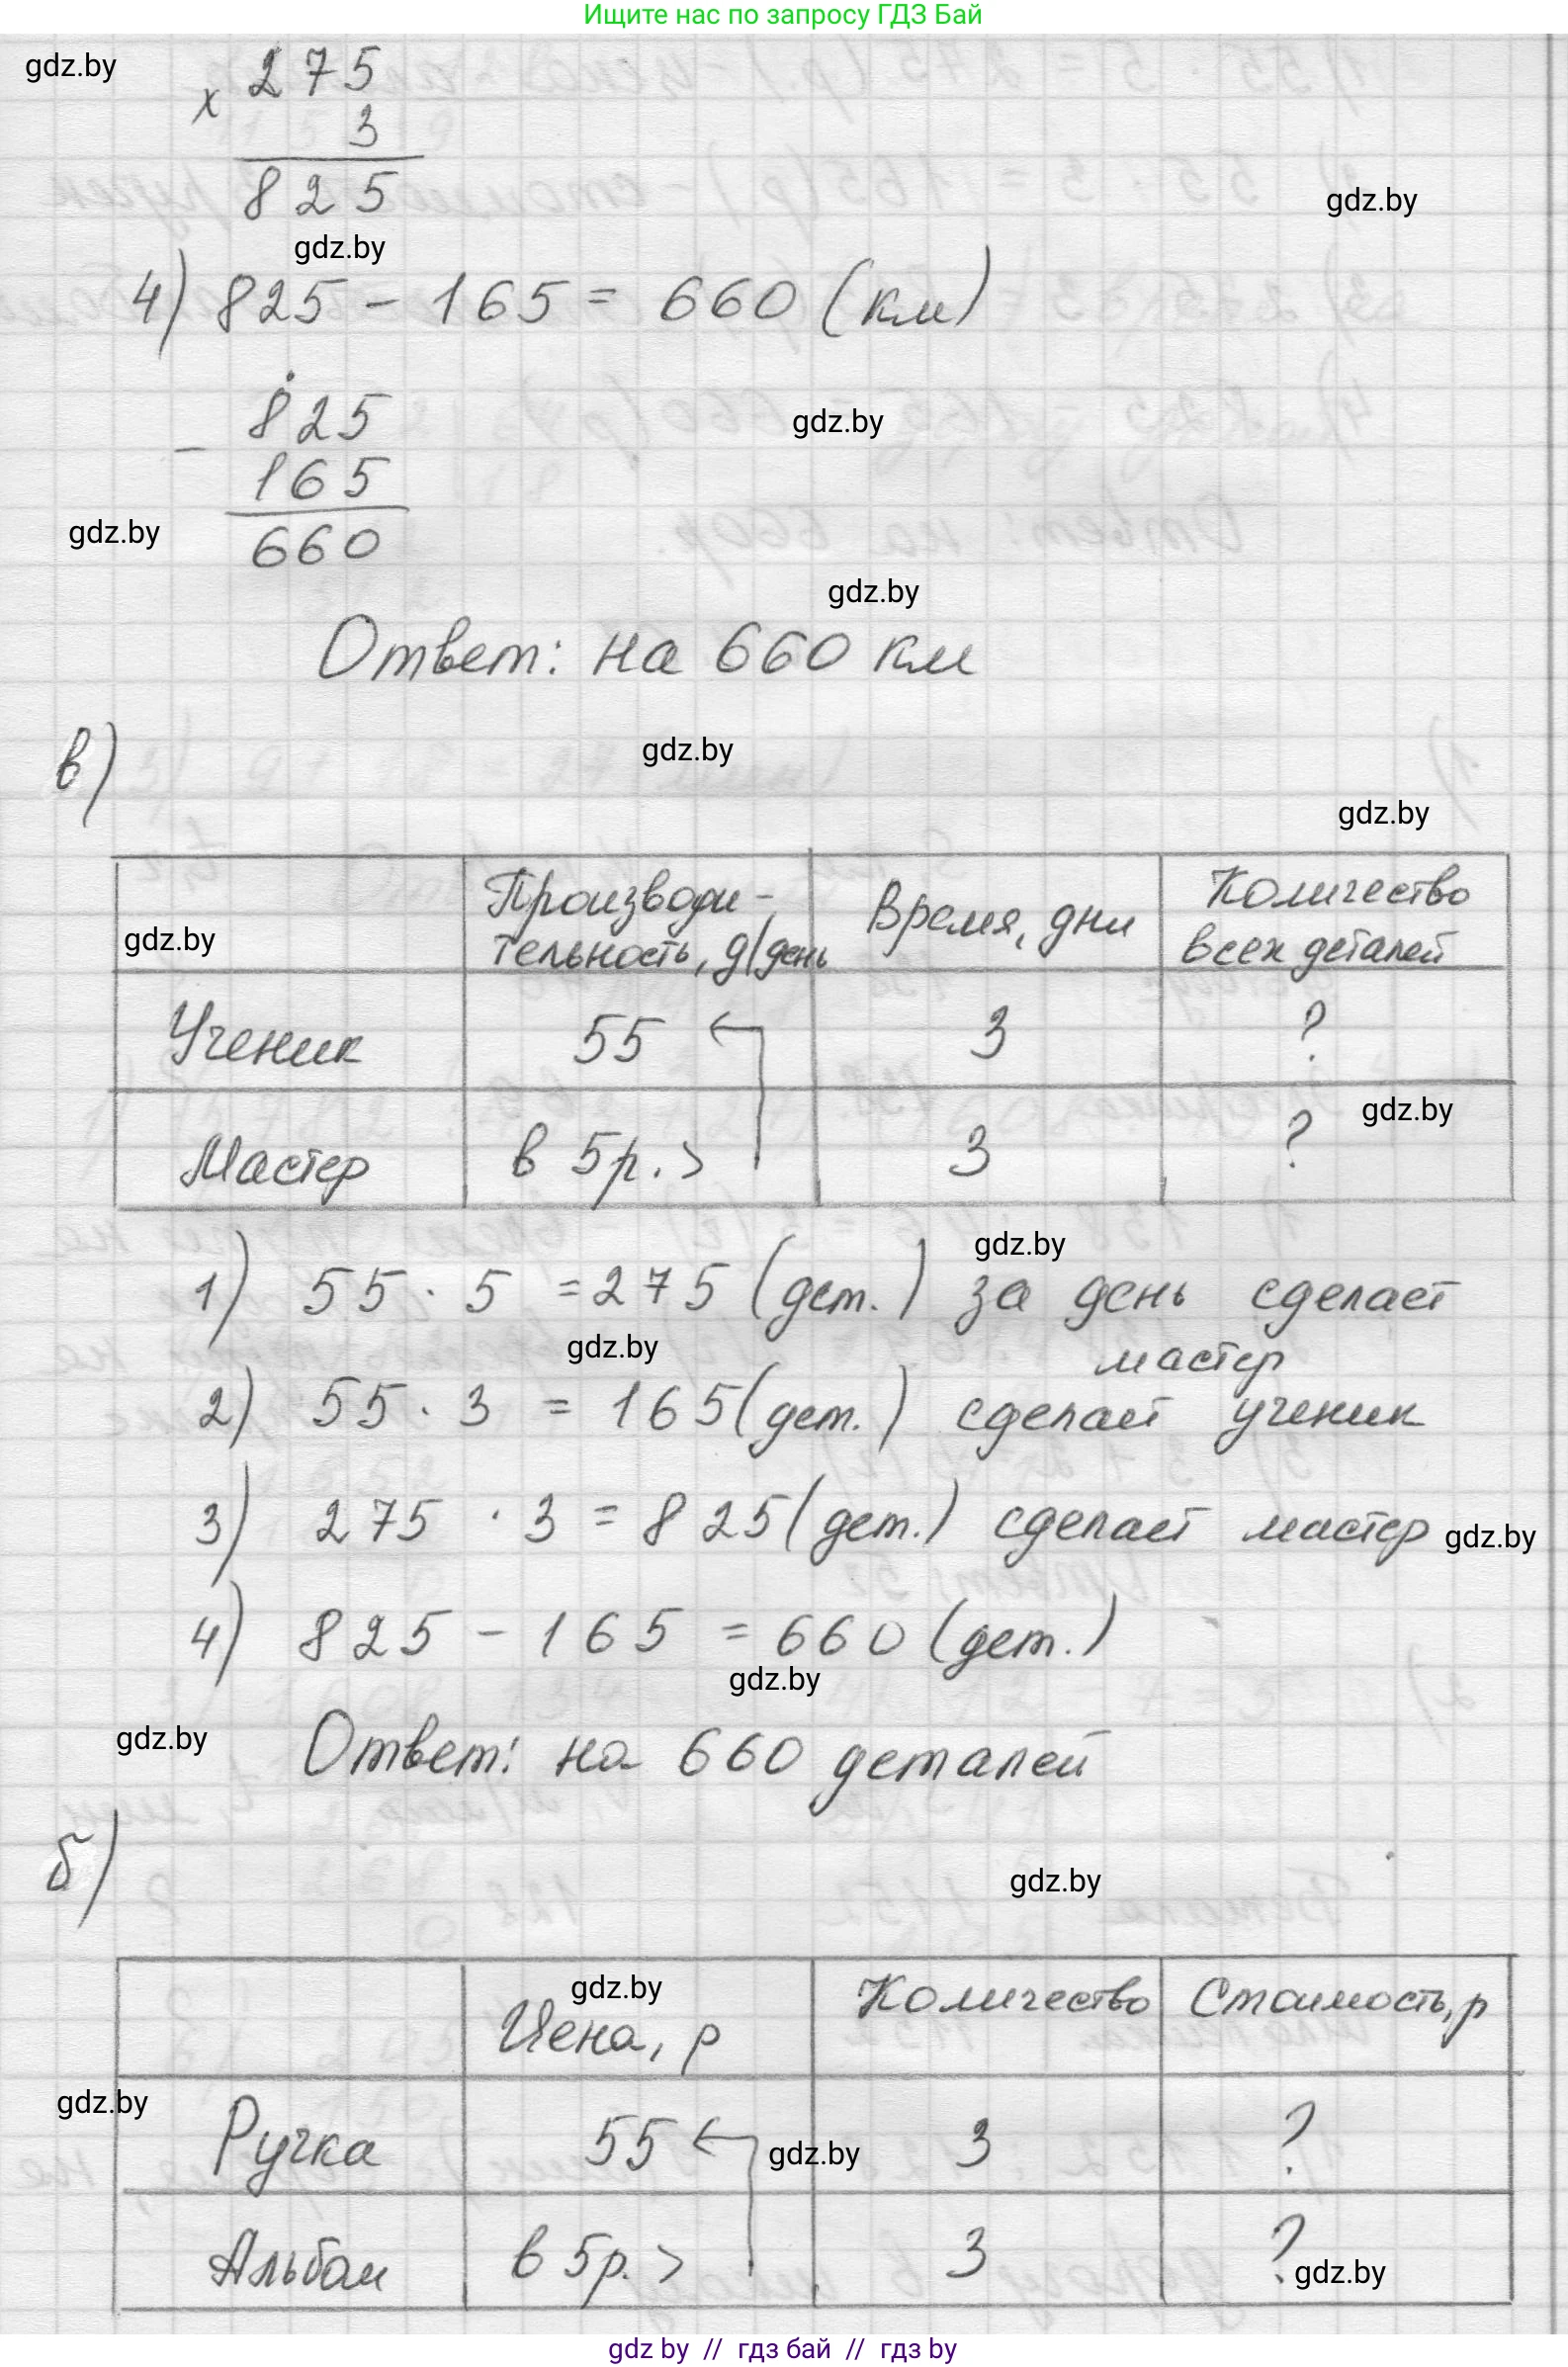 Ищите нас по запросу ГДЗ Бай
gdz.by
× 275
3
825
gdz.by
gdz.by
4) 825 - 165 = 660 (км)
- 825
165
660
gdz.by
gdz.by
gdz.by
Ответ: на 660 км
в)
gdz.by
gdz.by
Производи- Время, дни Количество
тельность, д/день всех деталей
gdz.by
Ученик 55 3 ?
Мастер в 5р. > 3 ?
gdz.by
1) 55 · 5 = 275 (дет.) за день сделает
мастер
gdz.by
gdz.by
2) 55 · 3 = 165 (дет.) сделает ученик
3) 275 · 3 = 825 (дет.) сделает мастер
gdz.by
4) 825 - 165 = 660 (дет.)
gdz.by
gdz.by
Ответ: на 660 деталей
б)
gdz.by
gdz.by
Цена, р Количество Стоимость, р
gdz.by
Ручка 55 3 ?
gdz.by
Альбом в 5р. > 3 ?
gdz.by
gdz by // гдз бай // гдз by